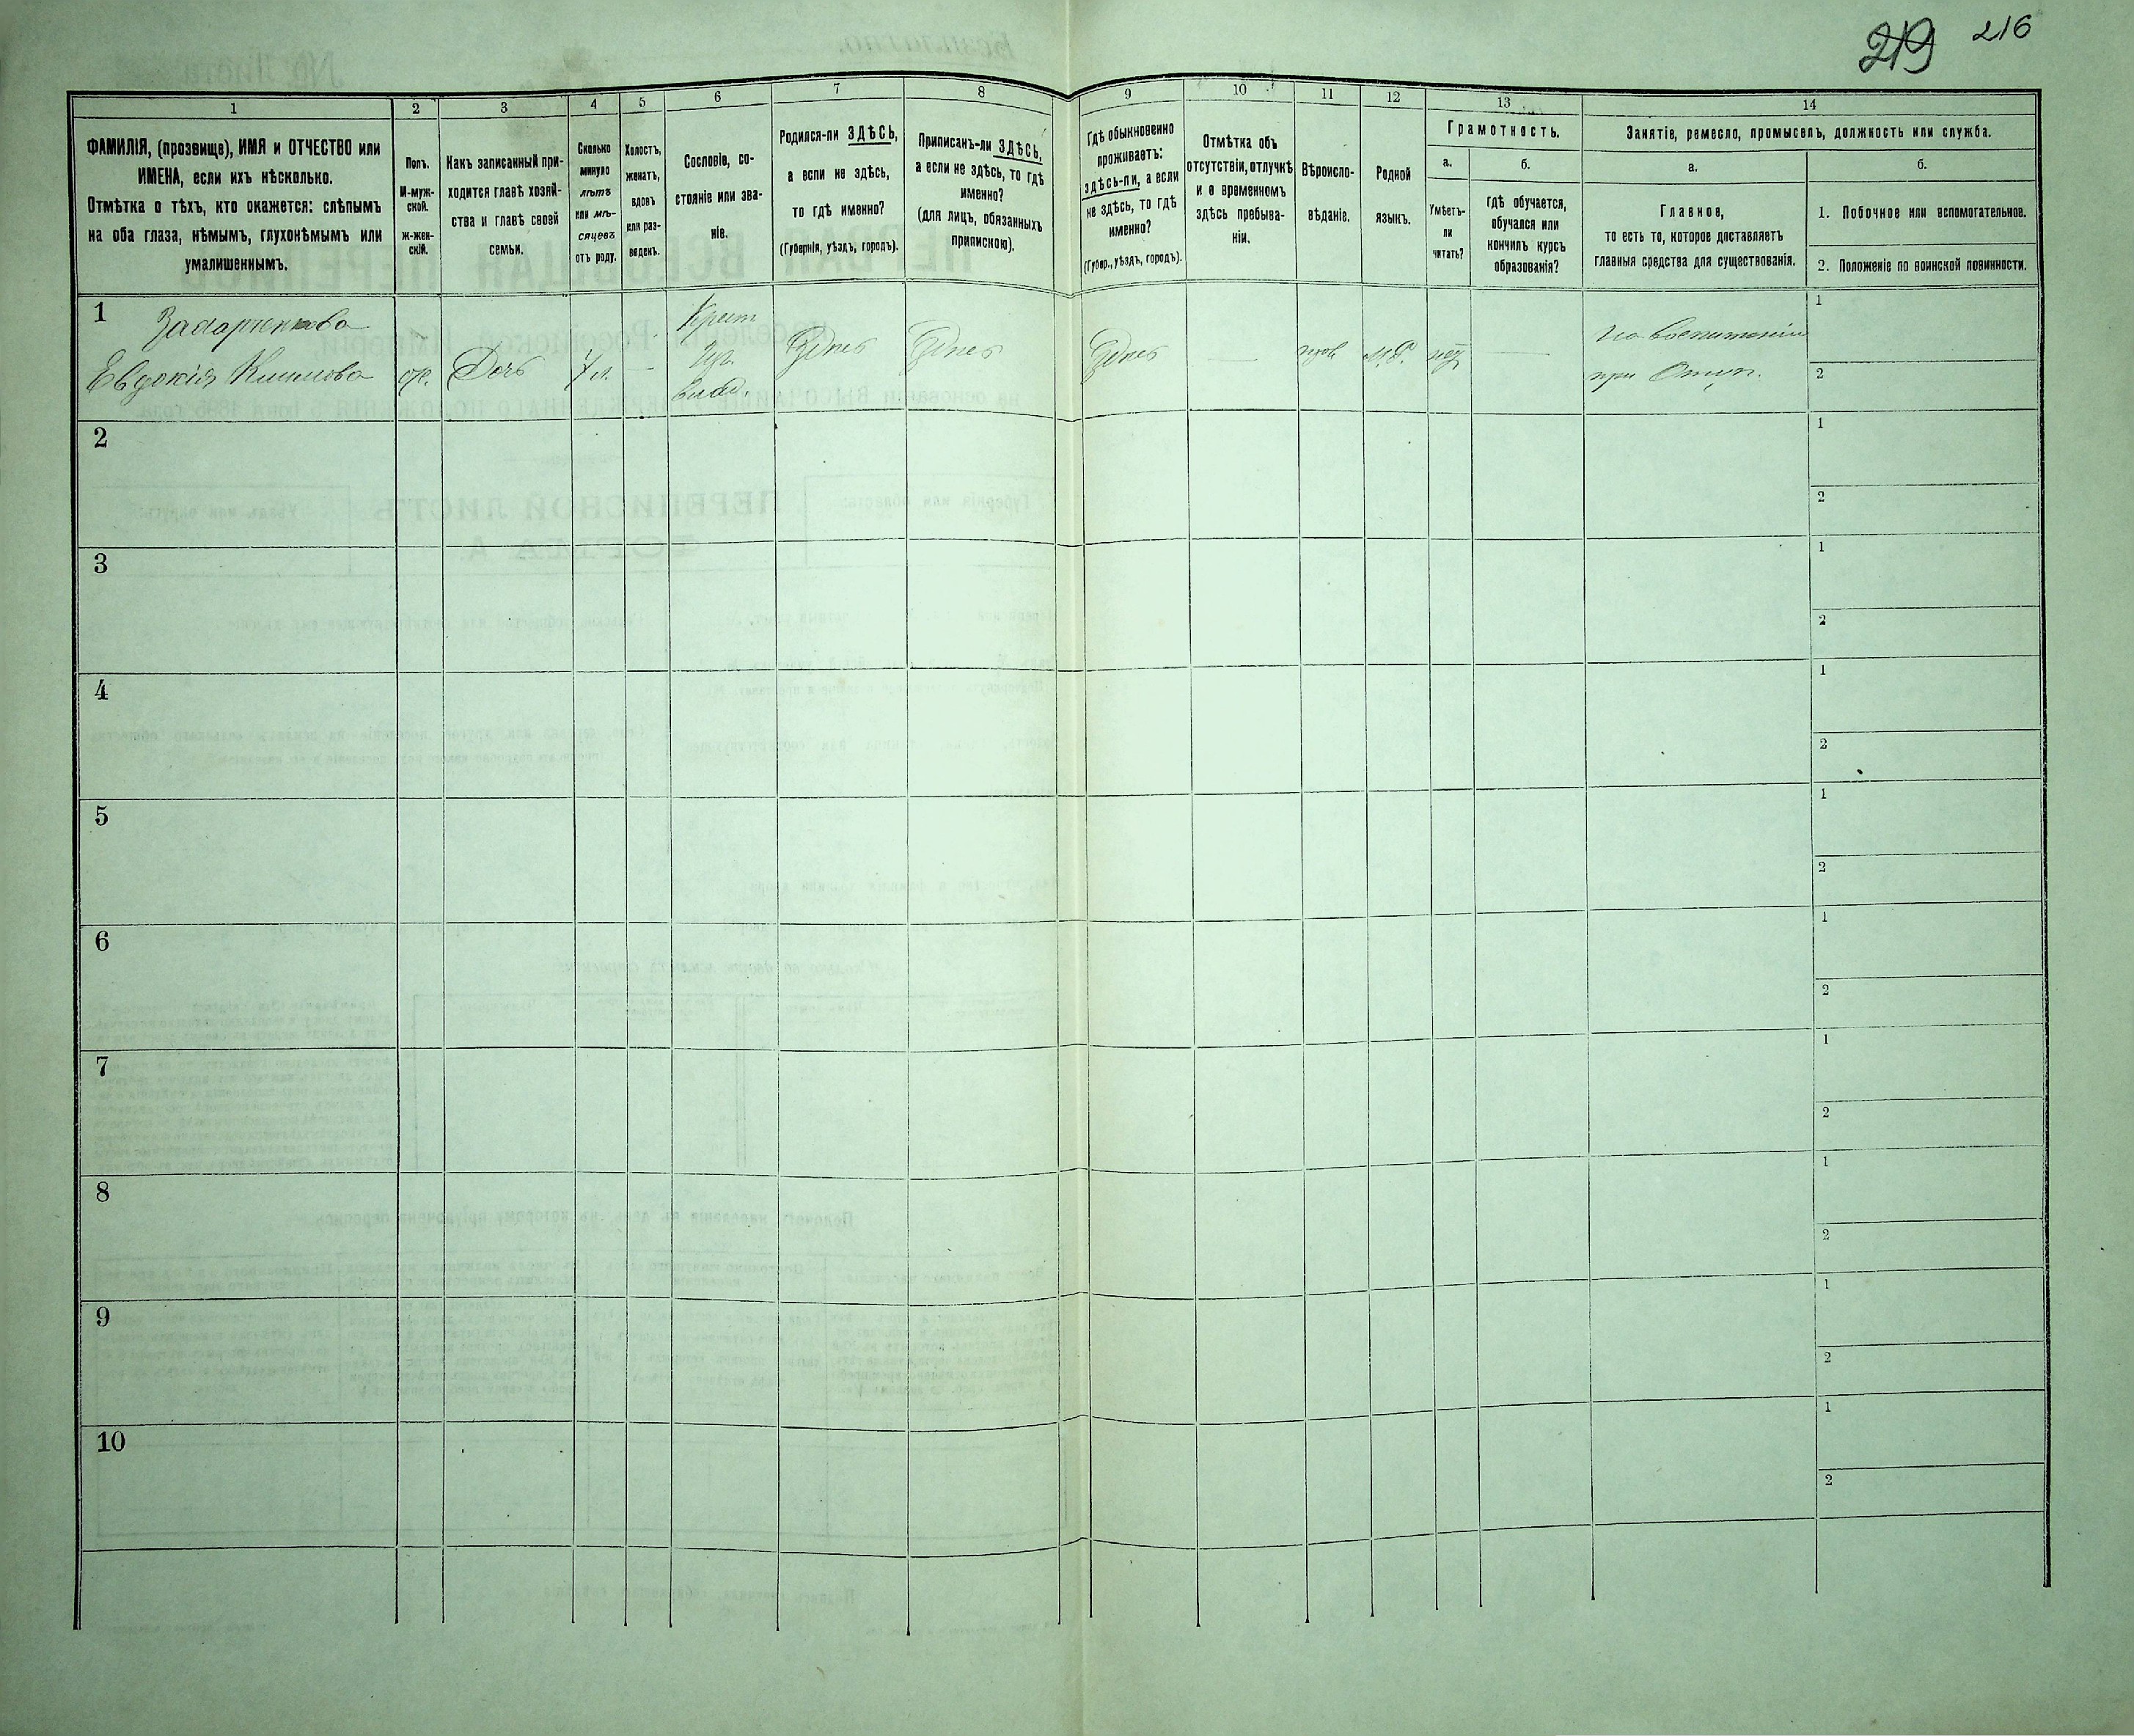 219 216
1 2 3 4 5 6 7 8 9 10 11 12 13 14
ФАМИЛІЯ, (прозвище), ИМЯ и ОТЧЕСТВО или
ИМЕНА, если ихъ нѣсколько.
Отмѣтка о тѣхъ, кто окажется: слѣпымъ
на оба глаза, нѣмымъ, глухонѣмымъ или
умалишеннымъ.
Полъ.
М-муж-
ской.
ж-жен-
скій.
Какъ записанный при-
ходится главѣ хозяй-
ства и главѣ своей
семьи.
Сколько
минуло
лѣтъ
или мѣ-
сяцевъ
отъ роду.
Холостъ,
женатъ,
вдовъ
или раз-
веденъ.
Сословіе, со-
стояніе или зва-
ніе.
Родился-ли ЗДѢСЬ,
а если не здѣсь,
то гдѣ именно?
(Губернія, уѣздъ, городъ).
Приписанъ-ли ЗДѢСЬ,
а если не здѣсь, то гдѣ
именно?
(для лицъ, обязанныхъ
припискою).
Гдѣ обыкновенно
проживаетъ:
здѣсь-ли, а если
не здѣсь, то гдѣ
именно?
(Губер., уѣздъ, городъ).
Отмѣтка объ
отсутствіи, отлучкѣ
и о временномъ
здѣсь пребыва-
ніи.
Вѣроиспо-
вѣданіе.
Родной
языкъ.
Грамотность.
а.
Умѣетъ-
ли
читать?
б.
гдѣ обучается,
обучался или
кончилъ курсъ
образованія?
Занятіе, ремесло, промыселъ, должность или служба.
а.
Главное,
то есть то, которое доставляетъ
главныя средства для существованія.
б.
1. Побочное или вспомогательное.
2. Положеніе по воинской повинности.
1
Евдокія Климова
Дочь
Крест
Изъ
влад.
Здѣсь
Здѣсь
Здѣсь
прав
М.Р.
нѣт
На воспитаніи
при
1
2
2
1
2
3
1
2
4
1
2
5
1
2
6
1
2
7
1
2
8
1
2
9
1
2
10
1
2